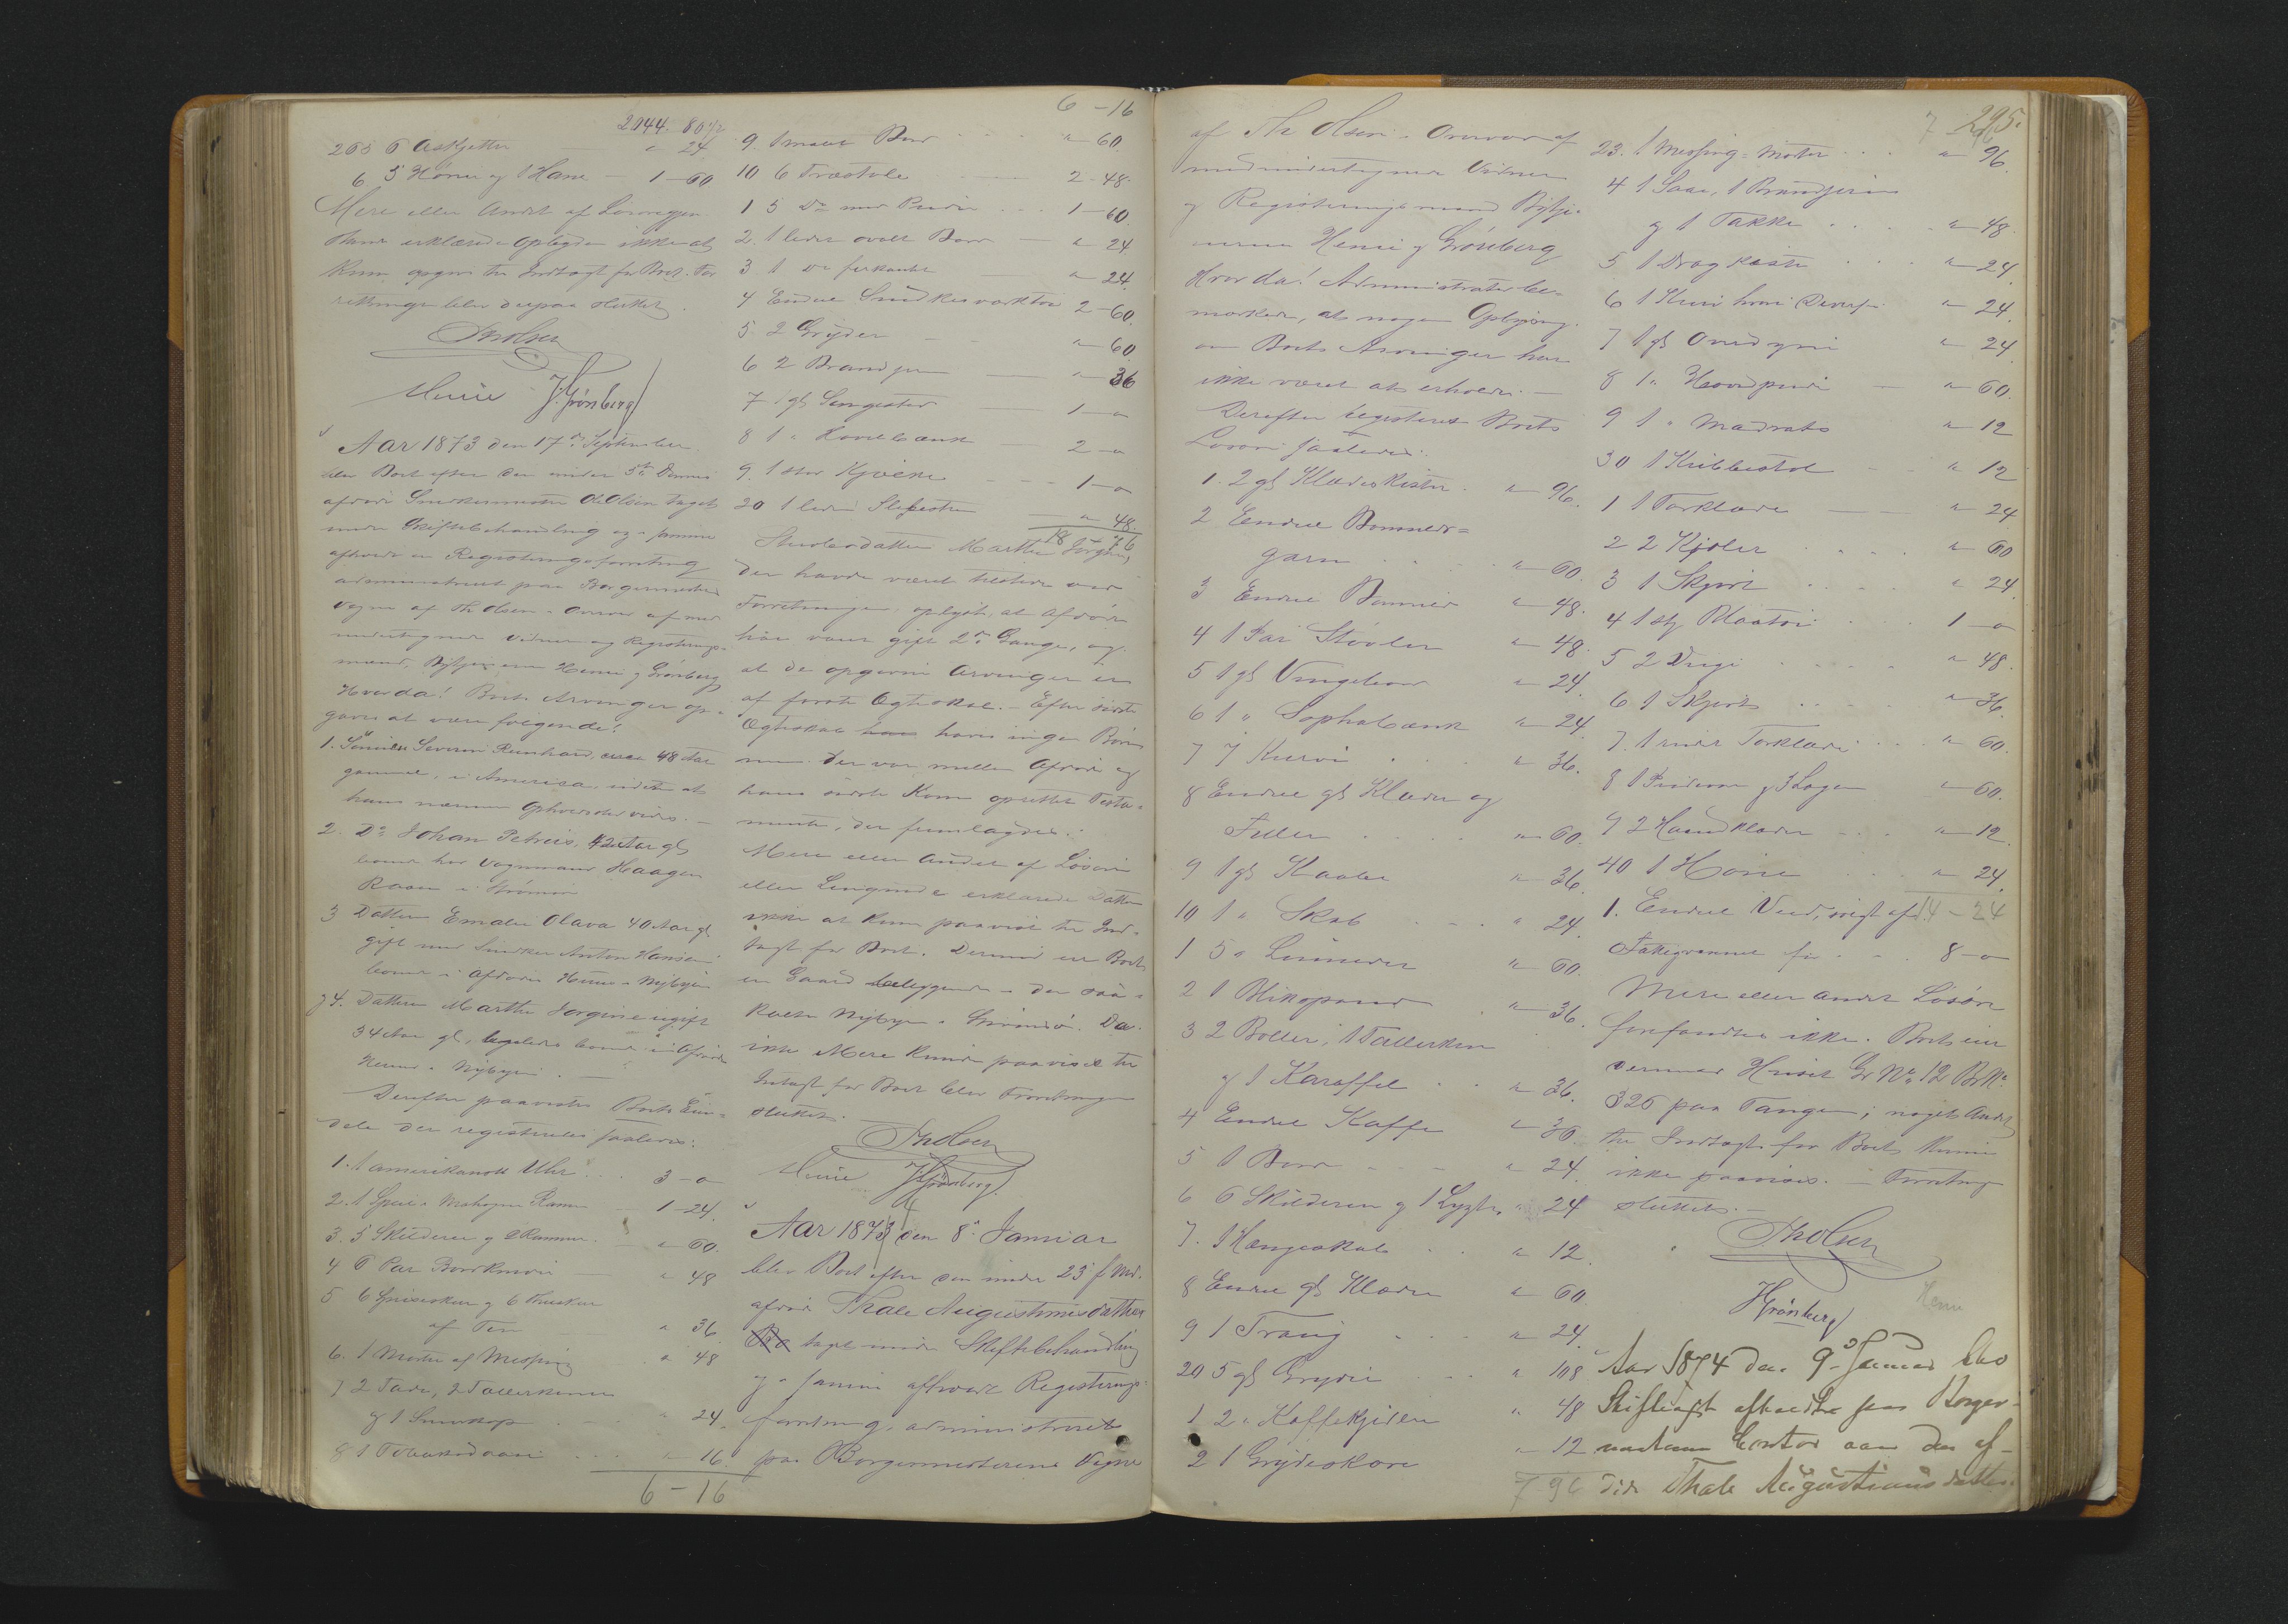 2044. 80½
265 6 Askjetter " 24.
6 5 Höner og 1 Hane – 1–60
Mere eller Andet af Lösøre
erklærede Opbyderen ikke at
kunne opgive til Indtægt for Boet. For
retningen blev derpaa sluttet.
Th Olsen
Henie J. Grönberg
Aar 1873 den 17de September
blev Boet efter den under 5te Dennes
afdøde Snedkermester Ol. Olsen taget
under Skiftebehandling og i samme
afholdt en Registreringsforretning
administreret paa Borgermesterens
Vegne af Th Olsen i Overvær af med
undertegnede Vidner og Registrerings-
mænd, Henie og Grönberg
Hvorda! Boets Arvinger op-
gaves at være følgende:
1. Sönnen Severin Reinhard, circa 48 Aar
gammel, i Amerika, uden at
hans nærmere Opholdssted vides. –
2. Do Johan Petrus, 42 Aar gl
boende hos Vognmand Haagen
Raaen i Strömsö
3 Datteren Emalie Olava 40 Aar gl.
gift med Snedker Anton Hansen
boende i Afdödes Huus i Nybyen
og 4. Datteren Marthe Jorgine ugift
34 Aar gl, ligeledes boende i Afdödes
Huus i Nybyen. –
Derefter paavistes Boets Eien-
dele der registreredes saaledes:
1. 1 amerikansk Uhr . . . 3–"
2. 1 Speil i Mahogny Ramme – 1–24.
3. 5 Skilderier og 2 Rammer. – " 60.
4 6 Par Bordknive – " 48
5 6 Spiseskeer og 6 Theskeer
af Tin – " 36.
6. 1 Morter af Messing " 48
7 2 Fade, 2 Tallerkener
og 1 " 24.
8 1 Tobaksdaase . . . " 16.
6–16
6–16
9. 1 malet Bord . . . " 60.
10 6 Træstole – 2–48.
1 5 Do med Puder . . . 1–60.
2. 1 lidet ovalt Bord – " 24.
3 1 Do firkantet " 24.
4 Endeel Snedkerværktøi 2–60.
5. 2 Gryder – " 60.
6 2 – " 36
7 1 gl Sengested 1–"
8 1 " Hövlebænk – 2–"
9. 1 stor Kjærre – 1–"
20 1 liden Slibesten – " 48.
18 76
Datteren Marthe Jorgine,
der havde været tilstede ved
Forretningen, oplyste, at Afdöde
har været gift 2de Gange, og
at de opgivne Arvinger er
af første Ægteskab. – Efter sidste
Ægteskab haves ingen Börn
men der var mellem Afdöde og
hans sidste Kone oprettet Testa-
mente, der fremlagdes. –
Mere eller Andet af Lösøre
eller erklærede Datteren
ikke at kunne paavise til Ind-
tægt for Boet. Dermed eier Boet
en Gaard beliggende i den saa-
kaldte Nybyen i Strömsö. Da
ikke Mere kunde paavises til
Indtægt for Boet blev Forretningen
sluttet.
Th Olsen
Henie J Grönberg
Aar 1873 den 8de Januar
blev Boet efter den under 23de f. Md.
afdøde Thale Augustinusdatter
taget under Skiftebehandling
og i samme afholdt Registrerings-
forretning, administreret
paa Borgermesterens Vegne
7 96 295.
af Th Olsen i Overvær af
medundertegnede Vidner
og Registreringsmænd
Henie og Grönberg
Hvorda! Administrator be-
mærkede, at nogen Oplysning
om Boets Arvinger har
ikke været at erholde. –
Derefter registreret Boets
Lösøre saaledes:
1. 2 gl Klædeskister . " 96.
2 Endeel Bommulds-
garn . . . " 60.
3 Endeel Bommuld " 48.
4 1 Par Stövler " 48.
5 1 gl Vingebord " 24.
6 1 " Sophabænk " 24.
7 7 Kurve . . . " 36.
8 Endeel gl Klæder og
Filler . . . " 60.
9 1 gl Kaabe " 36.
10 1 " Skab . . " 24.
1 5 " " 60.
2 1 Blikspand . " 36.
3 2 Boller, 1 Tallerken
og 1 Karaffel . . " 36.
4 Endeel Kaffe " 30.
5 1 Bord – " 24.
6 6 Skilderier og 1 Lygte " 24
7. 1 Hængeskab . . " 12.
8 Endeel gl Klæder " 60.
9 1 Traug . . " 24.
20 5 gl Gryder . . " 108
1 2 " Kaffekjedler " 48
2 1 Grydeskare " 12
7 96
23. 1 Messing-Morter . . . " 96.
4 1 Saae, 1
og 1 Takke . . . " 48.
5 1 Dragkiste . . . " 24.
6 1 Kurv hvori Diverse " 24.
7 1 gl Overdyne " 24.
8 1 " Hovedpude – " 60.
9 1 " Madrats " 12
30 1 Krikkestol – " 12
1 1 Forklæde – " 24.
2 2 Kjoler . . " 60
3 1 Skjört . . . " 24.
4 1 . . . 1–"
5 2 . . . " 48.
6 1 Skjört . . . " 36.
7. 1 Forklæde . . " 60.
8 1 og 3 Lagen " 60.
9 2 Haandklæder – . . " 12.
40 1 Höne . . . " 24.
14–24
1. Endeel Ved, solgt af
for . . . 8–"
Mere eller Andet Lösøre
forefandtes ikke. Boets eier
dernæst Huset Gr. No. 12 Br No.
326 paa Tangen; noget Andet
til Indtægt for Boet kunde
ikke paavises. – Forretningen
sluttet. –
Th Olsen
J Grönberg
Henie
Aar 1874 den 9. Januar blev
Skiftesamling afholdt paa Borger-
mesterens Contor i Boet efter den af-
døde Thale Augustinusdatter.